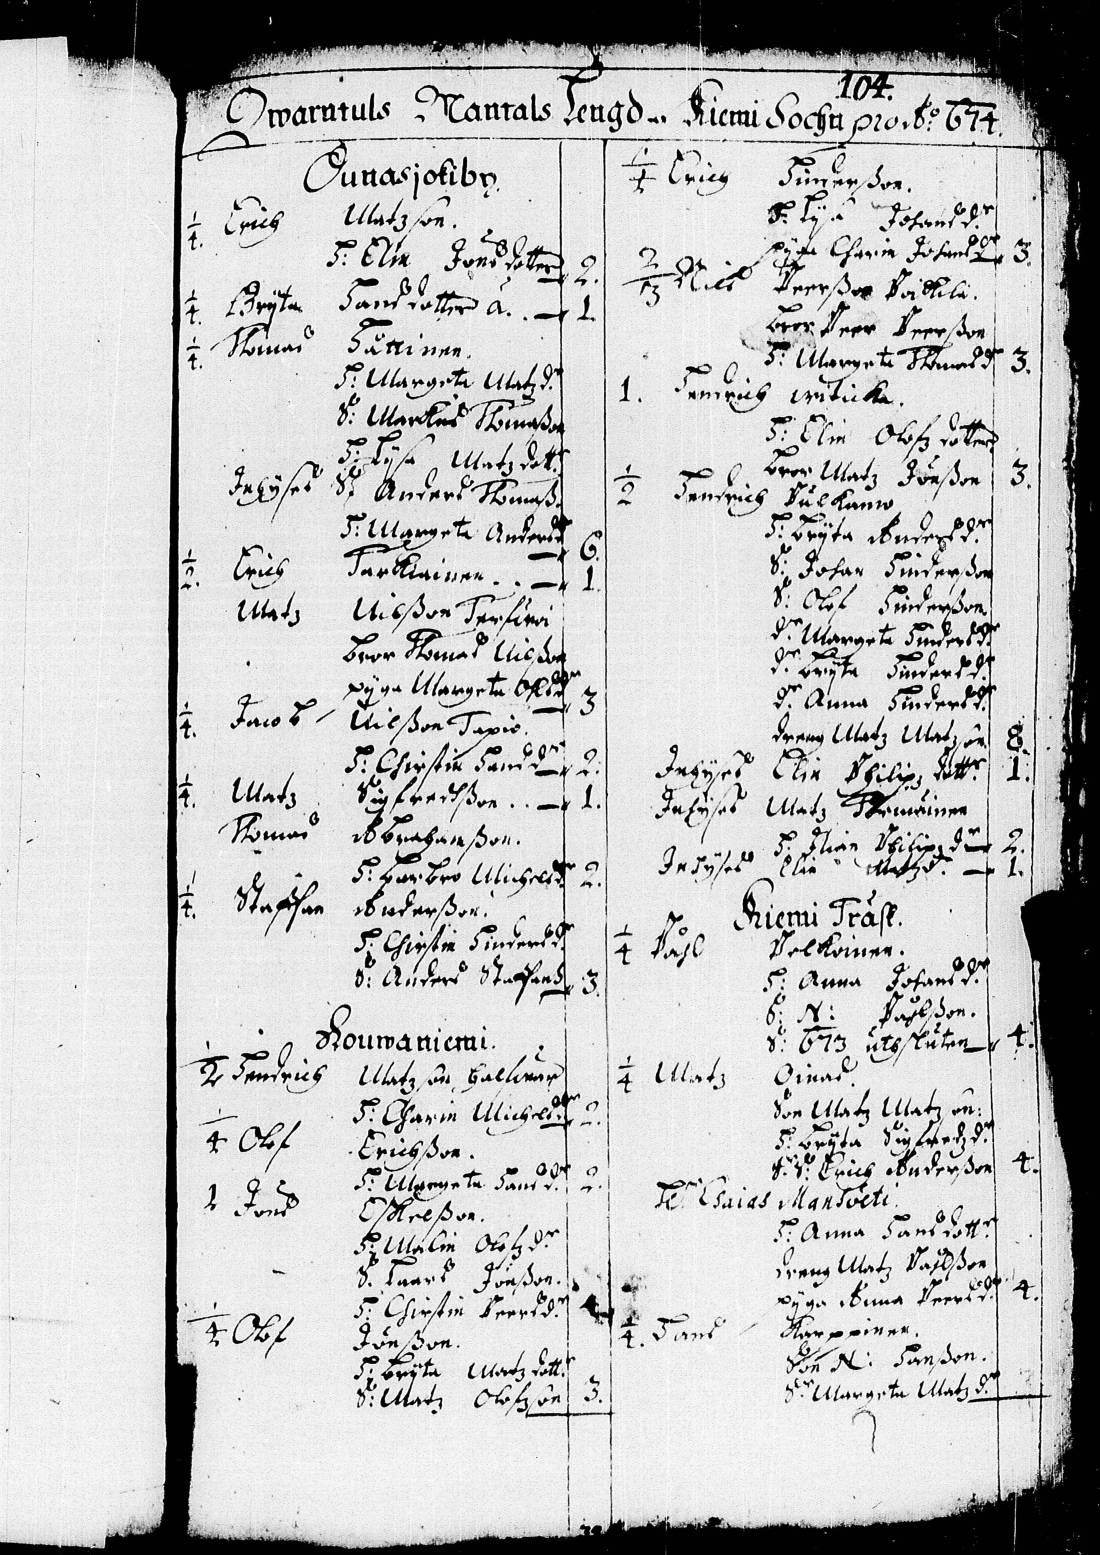 104.
Qwarntuls Mantals Lengd Kiemi Sochn pro Ao: 674.
Ounasjokiby.
1/4. Erich Matzson.
H: Elin Jönsdotter 2.
1/4. Bryta Hansdotter a. 1.
1/4. Thomas Hättinen.
H: Margeta Matzdr
S: Markus Thomaßon
H: Lysa Matzdottr
Inhyses S: Anders Thomaß.
H: Margeta Andersd 6.
1/2. Erich Tarkiainen 1.
Matz Nilßon
bror Thomas Nilßon
pyga Margeta Olsdr 3
1/4. Jacob Nilßon Tapio.
H: Chirstin Hansdr 2.
1/4. Matz Sigfredßon 1.
Thomas Abrahamßon.
H: barbro Michelsdr 2.
1/4. Staffan Anderßon.
H: Chirstin Hindersdr
S: Anders Staffans 3.
Rouwaniemi.
1/2 Hendrich Matzson Hallwar
H: Charin Michelsdr 2.
1/4 Olof Erichßon.
H: Margeta Hansdr 2.
1 Jöns Eskelßon.
H: Malin Olofzdr
S. Lars Jönßon.
H: Chirstin Peersdr 4
1/4 Olof Jönßon.
H: bryta Matzdottr
S: Matz Olofzson 3.
1/4 Erich Hinderßon.
H: Lysa Johansdr
pyga Charin Johansdr 3.
2/3 Nils Peerßon Poikila.
bror Peer Peerßon
H: Margeta Thomasd 3.
1. Hendrich
H: Elin Olofzdotter
bror Matz Jönßon 3.
1/2 Hendrich Pulkamo
H: bryta Andersdr
S: Johan Hinderßon
S: Olof Hinderßon
dr Margeta Hindersdr
dr bryta Hindersdr
dr Anna Hindersdr
dreng Matz Matzson 8.
Inhyses Elin Philipzdottr 1.
Inhyses Matz Thomainen
H: Philipzdr 2.
Inhyses Elin Matzd. 1.
Kiemi Träsk.
1/4 Påhl Pelkoinen.
H: Anna Johansdr
S: N: Påhlßon.
S: 673 uthsluten 4.
1/4 Matz Oinas.
Son Matz Matzson:
H: bryta Sigfredzdr
Erich Anderßon 4.
Hr Esaias Mansveti.
H: Anna Hansdottr
dreng Matz Påhlßon
pyga Anna Peersdr 4.
1/4. Hans Karppinen.
Son N: Hanßon.
Margeta Matzdr